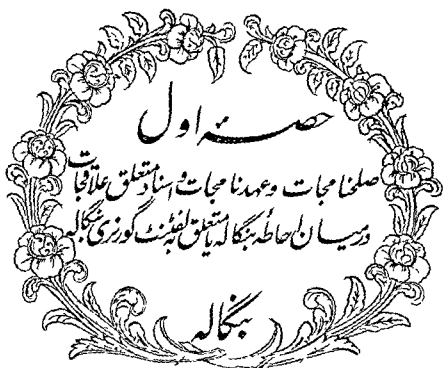 حصہ اول
صلحنامجات وعہدنامجات واسناد متعلق علاقجات
درمیان احاطۂ بنگالہ یا متعلق بہ لفٹنٹ گورنری بنگالہ
بنگالہ